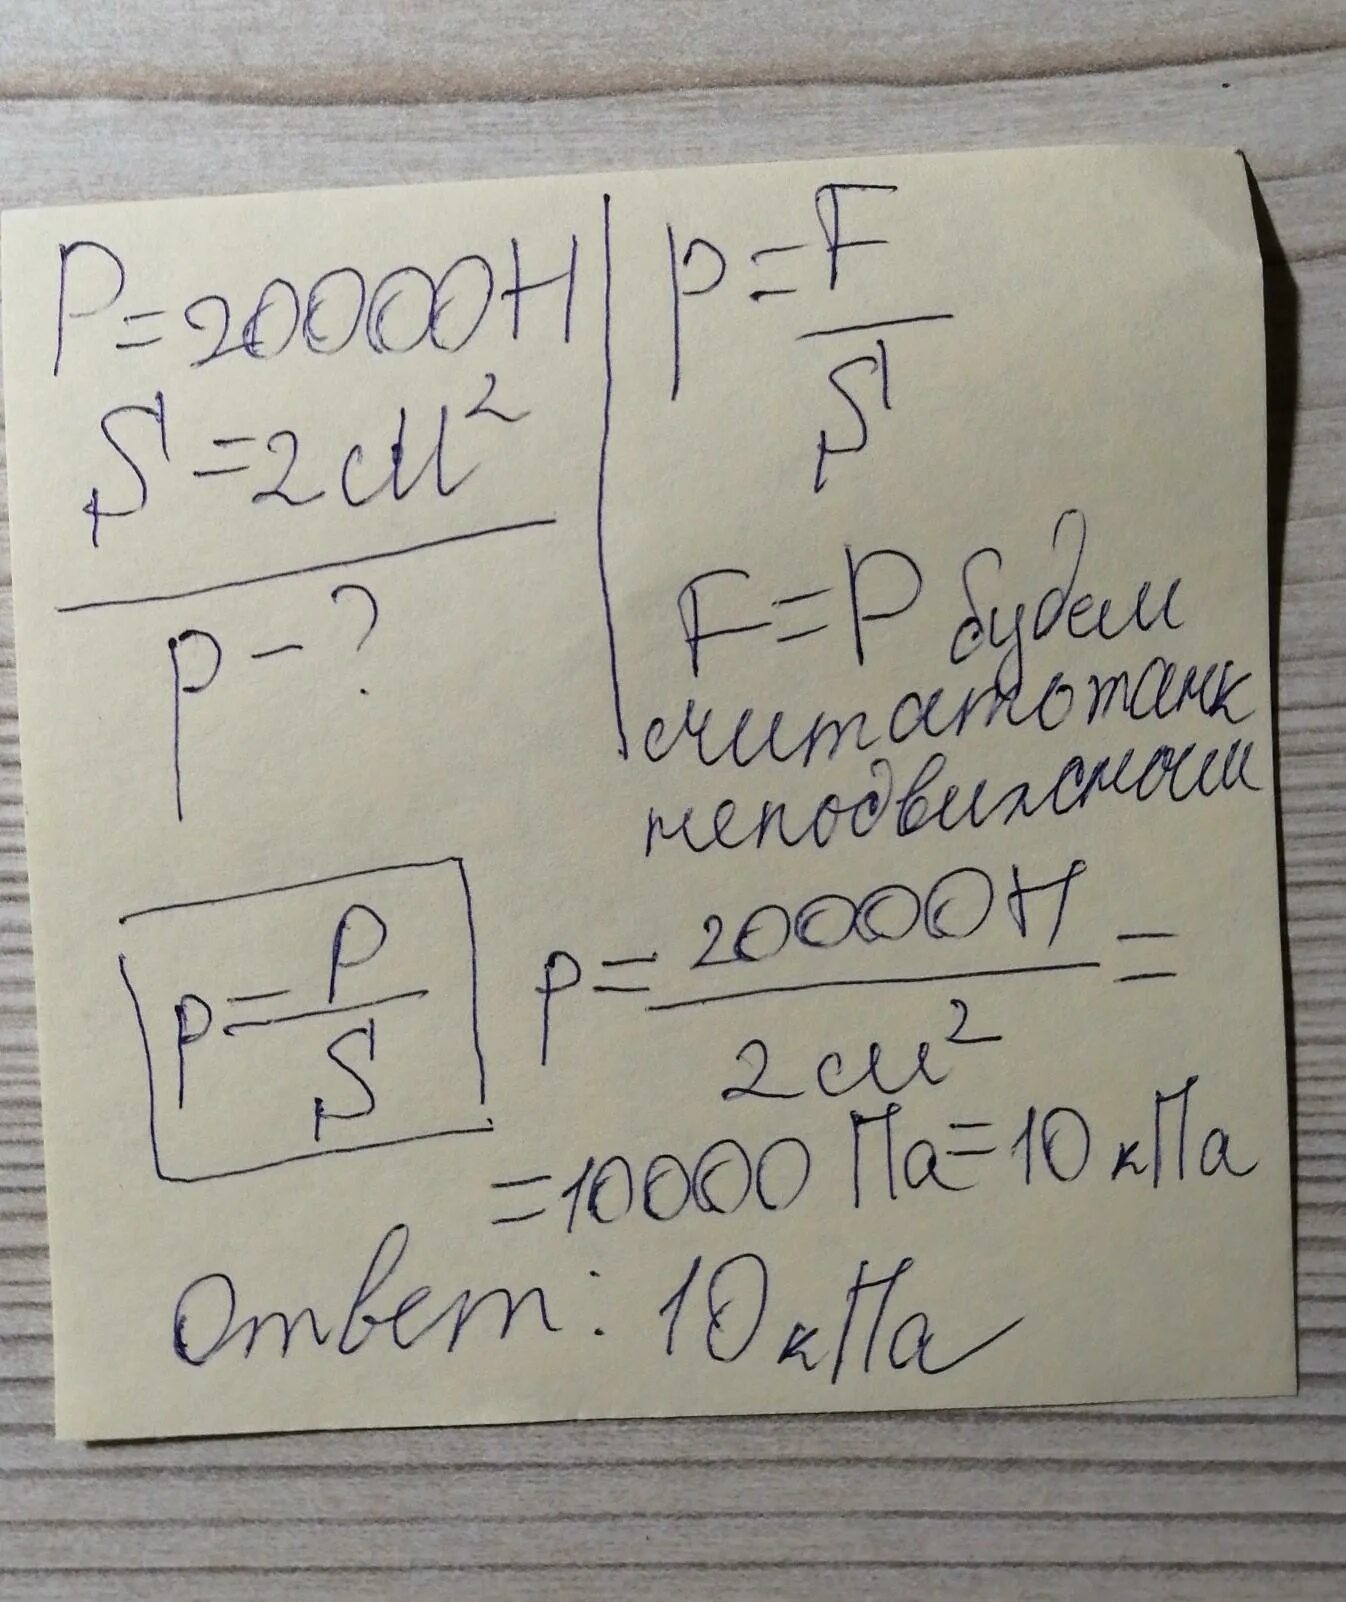 P=20000Н
S=2см²
p-?
p=F/S
F=P будем
считать танк
неподвижным
p=P/S
p=20000Н/2см²=
=10000Па=10кПа
Ответ: 10кПа